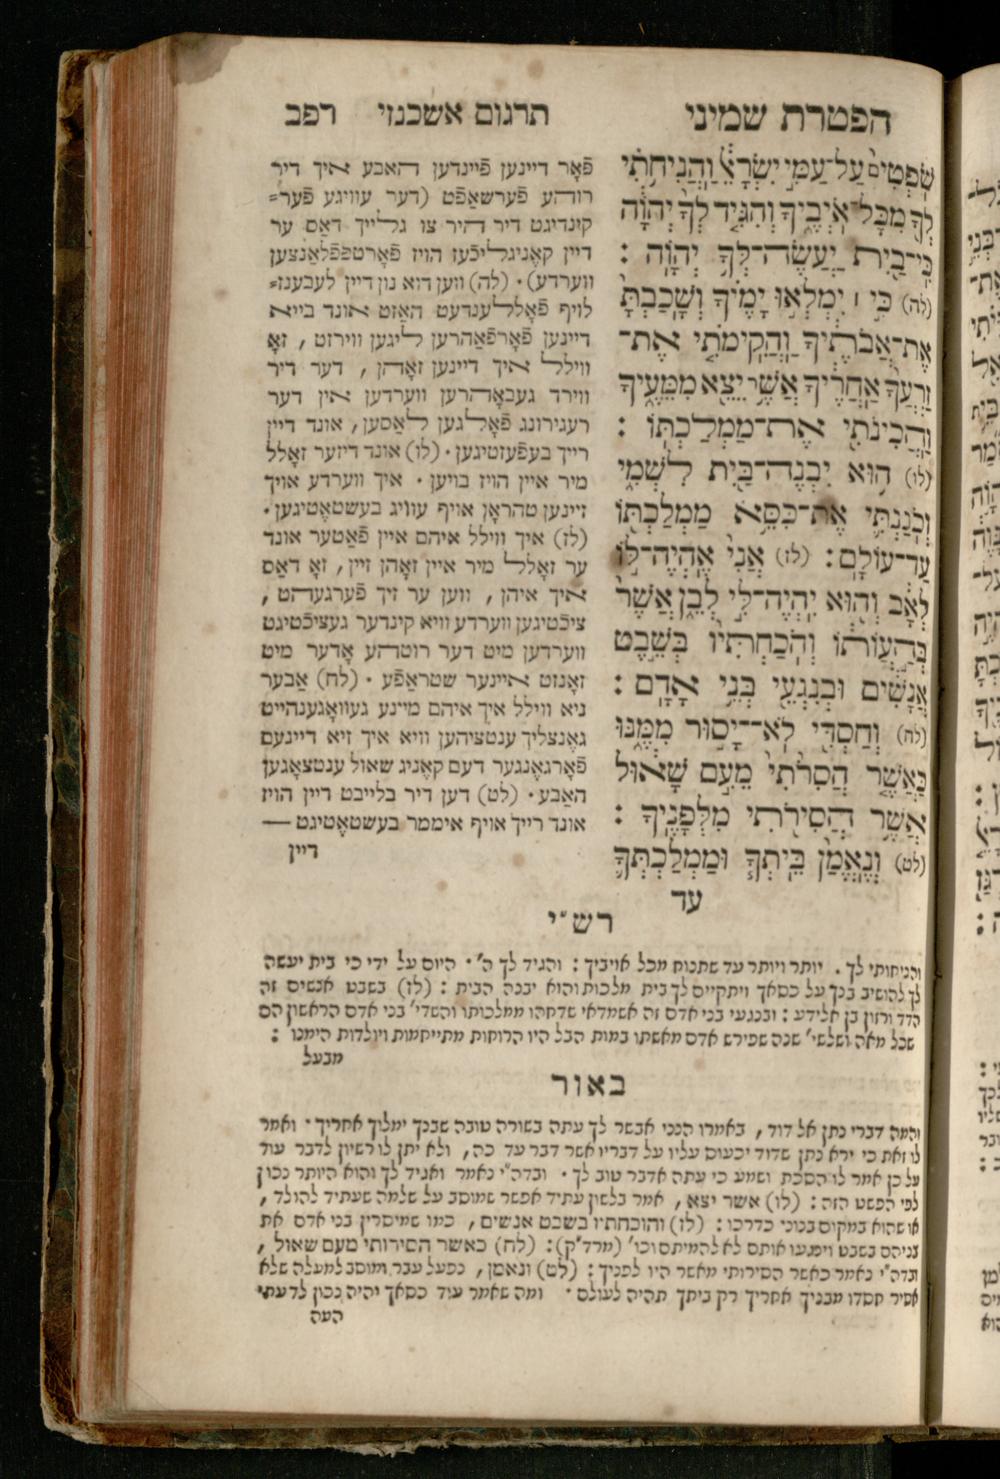 הפטרת שמיני תרגום אשכנזי רפב
שֹׁפְטִים֙ עַל־עַמִּ֣י יִשְׂרָאֵ֔ל וַהֲנִיחֹ֥תִי
לְךָ֖ מִכָּל־אֹֽיְבֶ֑יךָ וְהִגִּ֤יד לְךָ֙ יְהוָ֔ה
כִּי־בַ֖יִת יַֽעֲשֶׂה־לְּךָ֥ יְהוָֽה :
(לה) כִּ֣י ׀ יִמְלְא֣וּ יָמֶ֗יךָ וְשָֽׁכַבְתָּ֙
אֶת־אֲבֹתֶ֔יךָ וַהֲקִֽימֹתִ֤י אֶֽת־
זַרְעֲךָ֙ אַֽחֲרֶ֔יךָ אֲשֶׁ֥ר יֵצֵ֖א מִמֵּעֶ֑יךָ
וַהֲכִֽינֹתִ֖י אֶת־מַמְלַכְתּֽוֹ :
(לו) ה֥וּא יִבְנֶה־בַּ֖יִת לִשְׁמִ֑י
וְכֹנַנְתִּ֛י אֶת־כִּסֵּ֥א מַמְלַכְתּ֖וֹ
עַד־עוֹלָֽם : (לז) אֲנִי֙ אֶֽהְיֶה־לּ֣וֹ
לְאָ֔ב וְה֖וּא יִֽהְיֶה־לִּ֣י לְבֵ֑ן אֲשֶׁר֙
בְּהַ֣עֲוֹת֔וֹ וְהֹֽכַחְתִּיו֙ בְּשֵׁ֣בֶט
אֲנָשִׁ֔ים וּבְנִגְעֵ֖י בְּנֵ֥י אָדָֽם :
(לח) וְחַסְדִּ֖י לֹא־יָס֣וּר מִמֶּ֑נּוּ
כַּאֲשֶׁ֤ר הֲסִרֹ֙תִי֙ מֵעִ֣ם שָׁא֔וּל
אֲשֶׁ֥ר הֲסִירֹ֖תִי מִלְּפָנֶֽיךָ :
(לט) וְנֶאְמַ֨ן בֵּיתְךָ֧ וּמַֽמְלַכְתְּךָ֛
עד
פֿאָר דיינען פֿיינדען האבע איך דיר
רוהע פֿערשאַפֿט (דער עוויגע פֿער=
קינדיגט דיר היר צו גלייך דאַס ער
דיין קאָניגליכֿעז הויז פֿאָרטפפֿלאַנצען
ווערדע) . (לה) ווען דוא נון דיין לעבענז=
לויף פֿאָללענדעט האַזט אונד בייא
דיינען פֿאָרפֿאַהרען ליגען ווירזט , זאָ
ווילל איך דיינען זאָהן , דער דיר
ווירד געבאָהרען ווערדען אין דער
רעגירונג פֿאָלגען לאַסען , אונד דיין
רייך בעפֿעזטיגען . (לו) אונד דיזער זאָלל
מיר איין הויז בויען . איך ווערדע אויך
זיינען טהראָן אויף עוויג בעשטאָטיגען .
(לז) איך ווילל איהם איין פֿאַטער אונד
ער זאָלל מיר איין זאָהן זיין , זאָ דאַס
איך איהן , ווען ער זיך פֿערגעהט ,
ציכֿטיגען ווערדע וויא קינדער געציכֿטיגט
ווערדען מיט דער רוטהע אָדער מיט
זאָנזט איינער שטראַפֿע . (לח) אַבער
ניא ווילל איך איהם מיינע געוואָגענהייט
גאָנצליך ענטציהען וויא איך זיא דיינעם
פֿאָרגאָנגער דעם קאָניג שאול ענטצאָגען
האַבע . (לט) דען דיר בלייבט דיין הויז
אונד רייך אויף איממר בעשטאָטיגט —
דיין
רש״י
והניחותי לך . יותר ויותר עד שתנוח מכל אויביך : והגיד לך ה׳ . היום על ידי כי בית יעשה
לך להושיב בנך על כסאך ויתקיים לך בית מלכות והוא יבנה הבית : (לז) בשבט אנשים זה
הדד ורזון בן אלידע : ובנגעי בני אדם זה אשמדאי שדחהו ממלכותו והשדי׳ בני אדם הראשון הם
שכל מאה ושלשי׳ שנה שפירש אדם מאשתו במות הבל היו הרוחות מתייחמות ויולדות הימנו :
מבעל
באור
והמה דברי נתן אל דוד , באמרו הנני אבשר לך עתה בשורה טובה שבנך ימלוך אחריך . ואמר
לו זאת כי ירא נתן שדוד יכעוס עליו על דבריו אשר דבר עד כה , ולא יתן לו רשיון לדבר עוד
על כן אמר לו הסכת ושמע כי עתה אדבר טוב לך . ובדה״י נאמר ואגיד לך והוא היותר נכון
לפי הפשט הזה : (לו) אשר יצא , אמר בלשון עתיד אפשר שמוסב על שלמה שעתיד להולד ,
או שהוא במקום בנוני כדרכו : (לז) והוכחתיו בשבט אנשים , כמו שמיסרין בני אדם את
בניהם בשבט וימנעו אותם לא להמיתם וכו׳ (מרד״ק) : (לח) כאשר הסירותי מעם שאול ,
ובדה״י נאמר כאשר הסירותי מאשר היו לפניך : (לט) ונאמן , נפעל עבר ומוסב למעלה שלא
אסיר חסדו מבניך אחריך רק ביתך תהיה לעולם . ומה שאמר עוד כסאך יהיה נכון לדעתי
העה